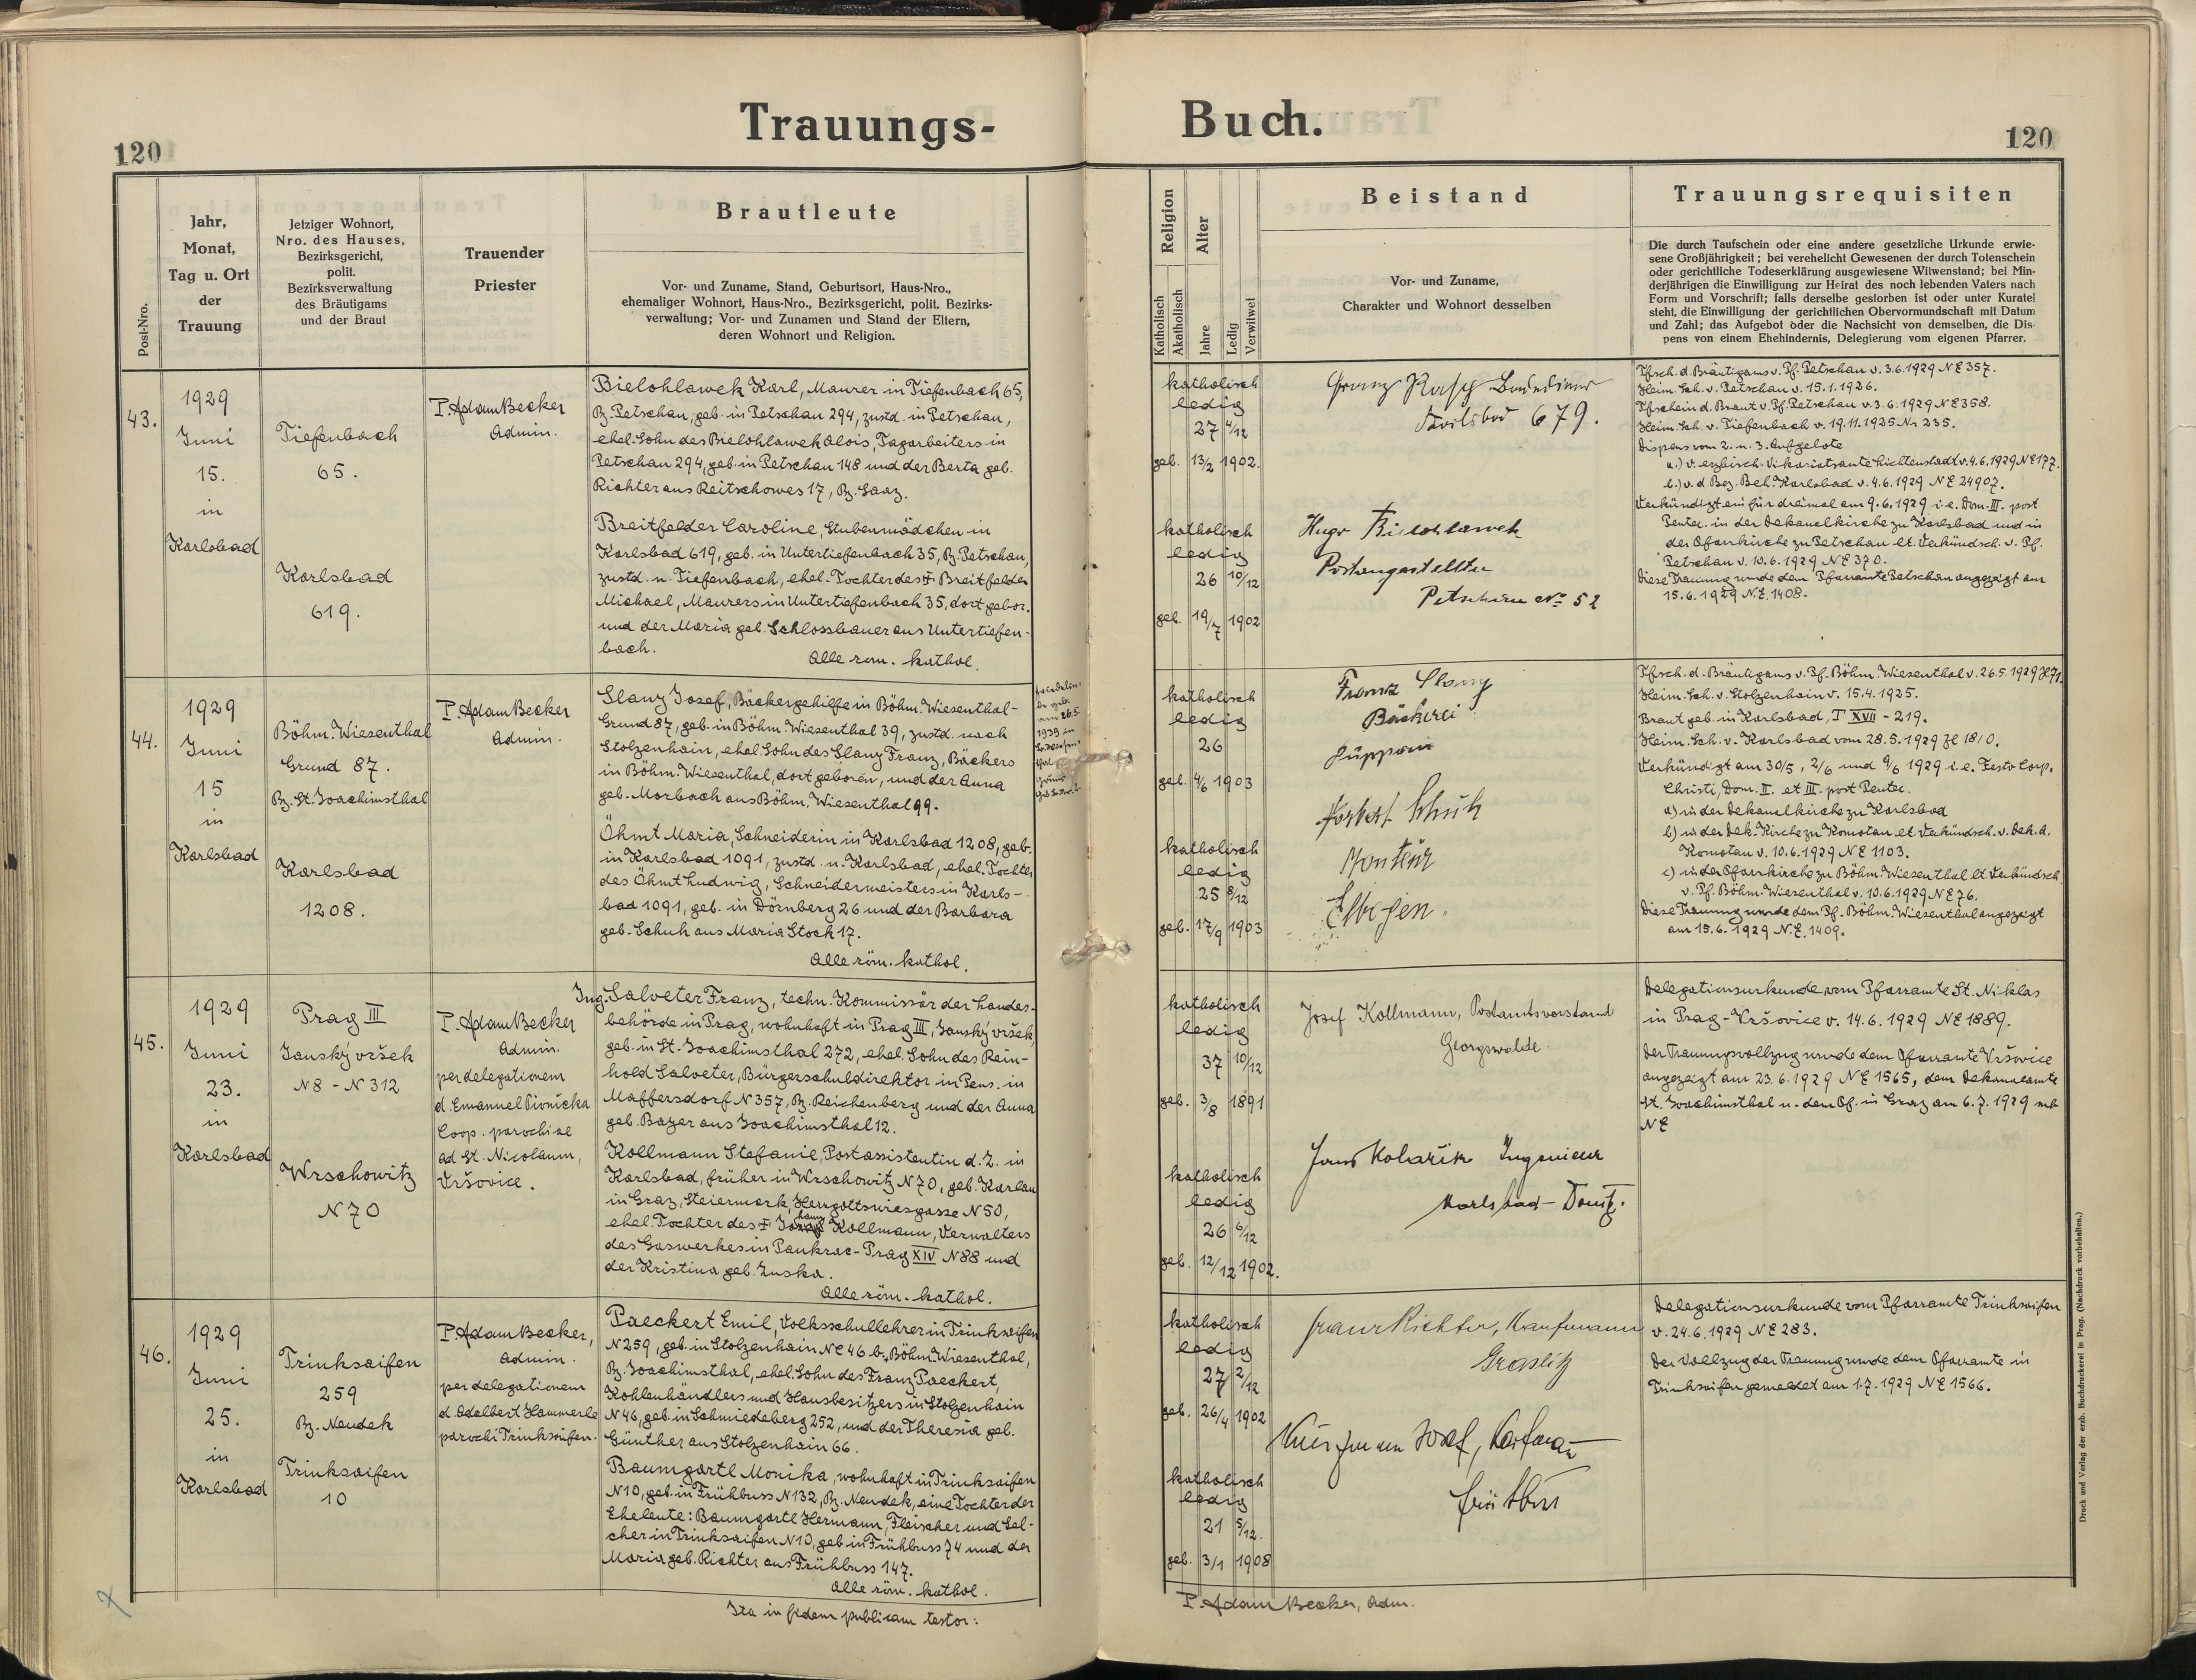 Trauungs-
120
Post-Nro.
Jahr,
Monat,
Tag u. Ort
der
Trauung
Jetziger Wohnort,
Nro. des Hauses,
Bezirksgericht,
polit.
Bezirksverwaltung
des Bräutigams
und der Braut
Trauender
Priester
Brautleute
Vor- und Zuname, Stand, Geburtsort, Haus-Nro.,
ehemaliger Wohnort, Haus-Nro., Bezirksgericht, polit. Bezirks-
verwaltung; Vor- und Zunamen und Stand der Eltern,
deren Wohnort und Religion.
43.
1929
Juni
15.
in
Karlsbad
Tiefenbach
65.
Karlsbad
619.
P. Adam Becker
Admin.
Bielohlawek Karl, Maurer in Tiefenbach 65,
Bz. Petschau, geb. in Petschau 294, zustd. in Petschau,
ehel. Sohn des Bielohlawek Alois, Tagarbeiters in
Petschau 294, geb. in Petschau 148 und der Berta geb.
Richter aus Reitschowes 17, Bz. Saaz.
Breitfelder Caroline, Stubenmädchen in
Karlsbad 619, geb. in Untertiefenbach 35, Bz. Petschau,
zustd. n. Tiefenbach, ehel. Tochter des † Breitfelder
Michael, Maurers in Untertiefenbach 35, dort gebor.
und der Maria geb. Schlossbauer aus Untertiefen-
bach.
Alle röm. kathol.
44.
1929
Juni
15
in
Karlsbad
Böhm. Wiesenthal
Grund 87.
Bz. St. Joachimsthal
Karlsbad
1208.
P. Adam Becker
Admin.
Slany Josef, Bäckergehilfe in Böhm. Wiesenthal-
Grund 87, geb. in Böhm. Wiesenthal 39, zustd. nach
Stolzenhain, ehel. Sohn des Slany Franz, Bäckers
in Böhm. Wiesenthal, dort geboren, und der Anna
geb. Morbach aus Böhm. Wiesenthal 99.
Öhmt Maria, Schneiderin in Karlsbad 1208, geb.
in Karlsbad 1091, zustd. n. Karlsbad, ehel. Tochter
des Öhmt Ludwig, Schneidermeisters in Karls-
bad 1091, geb. in Dörnberg 26 und der Barbara
geb. Schuh aus Maria Stock 17.
Alle röm. kathol.
geb.
am 26.5.
1939 in
45.
1929
Juni
23.
in
Karlsbad
Prag III
Janský vršek
N 8 - N 312
Wrschowitz
N 70
P. Adam Becker
Admin.
per delegationem
d. Emanuel Pivnicka
Coop. parochiae
ad St. Nicolaum,
Vršovice.
Ing. Salveter Franz, techn. Kommissär der Landes-
behörde in Prag, wohnhaft in Prag III, Janský vršek,
geb. in St. Joachimsthal 272, ehel. Sohn des Rein-
hold Salveter, Bürgerschuldirektor in Pens. in
Maffersdorf N 357, Bz. Reichenberg und der Anna
geb. Bayer aus Joachimsthal 12.
Kollmann Stefanie, Postassistentin d. Z. in
Karlsbad, früher in Wrschowitz N 70, geb. Karlau
in Graz, Steiermark, Herrgottswiesgasse N 50,
ehel. Tochter des † Johann Kollmann, Verwalters
des Gaswerkes in Pankrac-Prag XIV N 88 und
der Kristina geb. Zuska.
Alle röm. kathol.
46.
1929
Juni
25.
in
Karlsbad
Trinksaifen
259
Bz. Neudek
Trinksaifen
10
P. Adam Becker,
Admin.
per delegationem
d. Adalbert Hammerle
parochi Trinksaifen.
Paeckert Emil, Volksschullehrer in Trinksaifen
N 259, geb. in Stolzenhain NC 46 b. Böhm. Wiesenthal,
Bz. Joachimsthal, ehel. Sohn des Franz Paeckert,
Kohlenhändlers und Hausbesitzers in Stolzenhain
N 46, geb. in Schmiedeberg 252, und der Theresia geb.
Günther aus Stolzenhain 66.
Baumgartl Monika, wohnhaft in Trinksaifen
N 10, geb. in Frühbuss N 132, Bz. Neudek, eine Tochter der
Eheleute: Baumgartl Hermann, Fleischer und Sel-
cher in Trinksaifen N 10, geb. in Frühbuss 74 und der
Maria geb. Richter aus Frühbuss 147.
Alle röm. kathol.
Ita in fidem publicam testor:
Buch.
120
Religion
Katholisch
Akatholisch
Alter
Jahre
Ledig
Verwitwet
Beistand
Vor- und Zuname,
Charakter und Wohnort desselben
Trauungsrequisiten
Die durch Taufschein oder eine andere gesetzliche Urkunde erwie-
sene Großjährigkeit; bei verehelicht Gewesenen der durch Totenschein
oder gerichtliche Todeserklärung ausgewiesene Witwenstand; bei Min-
derjährigen die Einwilligung zur Heirat des noch lebenden Vaters nach
Form und Vorschrift; falls derselbe gestorben ist oder unter Kuratel
steht, die Einwilligung der gerichtlichen Obervormundschaft mit Datum
und Zahl; das Aufgebot oder die Nachsicht von demselben, die Dis-
pens von einem Ehehindernis, Delegierung vom eigenen Pfarrer.
katholisch
ledig
27 4/12
geb. 13/2 1902.
katholisch
ledig
26 10/12
geb. 19/7 1902
Franz
Karlsbad 679.
Hugo Bielohlawek
Postangestellter
Petschau No 52
Tfsch. d. Bräutigams v. Pf. Petschau v. 3.6.1929 NE 357.
Heim. Sch. v. Petschau v. 15.1.1926.
Tfschein d. Braut v. Pf. Petschau v. 3.6.1929 NE 358.
Heim. Sch. v. Tiefenbach v. 19.11.1925 Nr 235.
Dispens vom 2. u. 3. Aufgebote
a.) v. erzbisch. Vikariatsamte Lichtenstadt v. 4.6.1929 NE 177.
b.) v. d. Bez. Beh. Karlsbad v. 4.6.1929 NE 24907.
Verkündigt ein für dreimal am 9.6.1929 i. e. Dom. III. post
Pentec. in der Dekanalkirche zu Karlsbad und in
der Pfarrkirche zu Petschau lt. Verkündsch. v. Pf.
Petschau v. 10.6.1929 NE 370.
Diese Trauung wurde dem Pfarramte Petschau angezeigt am
15.6.1929 N.E. 1408.
katholisch
ledig
26
geb. 4/6 1903
katholisch
ledig
25 8/12
geb. 17/9 1903
Franz Slany
Bäckerei
Schuh
Monteur
Elbogen.
Tfsch. d. Bräutigams v. Pf. Böhm. Wiesenthal v. 26.5.1929
Heim. Sch. v. Stolzenhain v. 15.4.1925.
Braut geb. in Karlsbad, T XVII - 219.
Heim. Sch. v. Karlsbad vom 28.5.1929 Zl 1810.
Verkündigt am 30/5, 2/6 und 9/6 1929 i. e. Festo Corp.
Christi, Dom. II. et III. post Pentec.
a) in der Dekanalkirche zu Karlsbad
b) in der Dek. Kirche zu Komotau lt Verkündsch. v. Dek. A.
Komotau v. 10.6.1929 NE 1103.
c) in der Pfarrkirche zu Böhm. Wiesenthal lt Verkündsch.
v. Pf. Böhm. Wiesenthal v. 10.6.1929 NE 76.
Diese Trauung wurde dem Pf. Böhm. Wiesenthal angezeigt
am 15.6.1929 N.E. 1409.
katholisch
ledig
37 10/12
geb. 3/8 1891
katholisch
ledig
26 6/12
geb. 12/12 1902.
Josef Kollmann, Postamtsvorstand
Georgswalde.
Kolařik Ingenieur
Karlsbad - Donitz.
Delegationsurkunde vom Pfarramte St. Niklas
in Prag-Vršovice v. 14.6.1929 NE 1889.
Der Trauungsvollzug wurde dem Pfarramte Vršovice
angezeigt am 23.6.1929 NE 1565, dem Dekanalamte
St. Joachimsthal u. dem Pf. in Graz am 6.7.1929 sub
NE
katholisch
ledig
27 2/12
geb. 26/4 1902
katholisch
ledig
21 5/12.
geb. 3/1 1908
Franz Richter, Kaufmann
Graslitz
Josef, Kaufmann
Frühbus
Delegationsurkunde vom Pfarramte Trinksaifen
v. 24.6.1929 NE 283.
Der Vollzug der Trauung wurde dem Pfarramte in
Trinksaifen gemeldet am 1.7.1929 NE 1566.
P. Adam Becker, Adm.
Druck und Verlag der erzb. Buchdruckerei in Prag. (Nachdruck vorbehalten.)